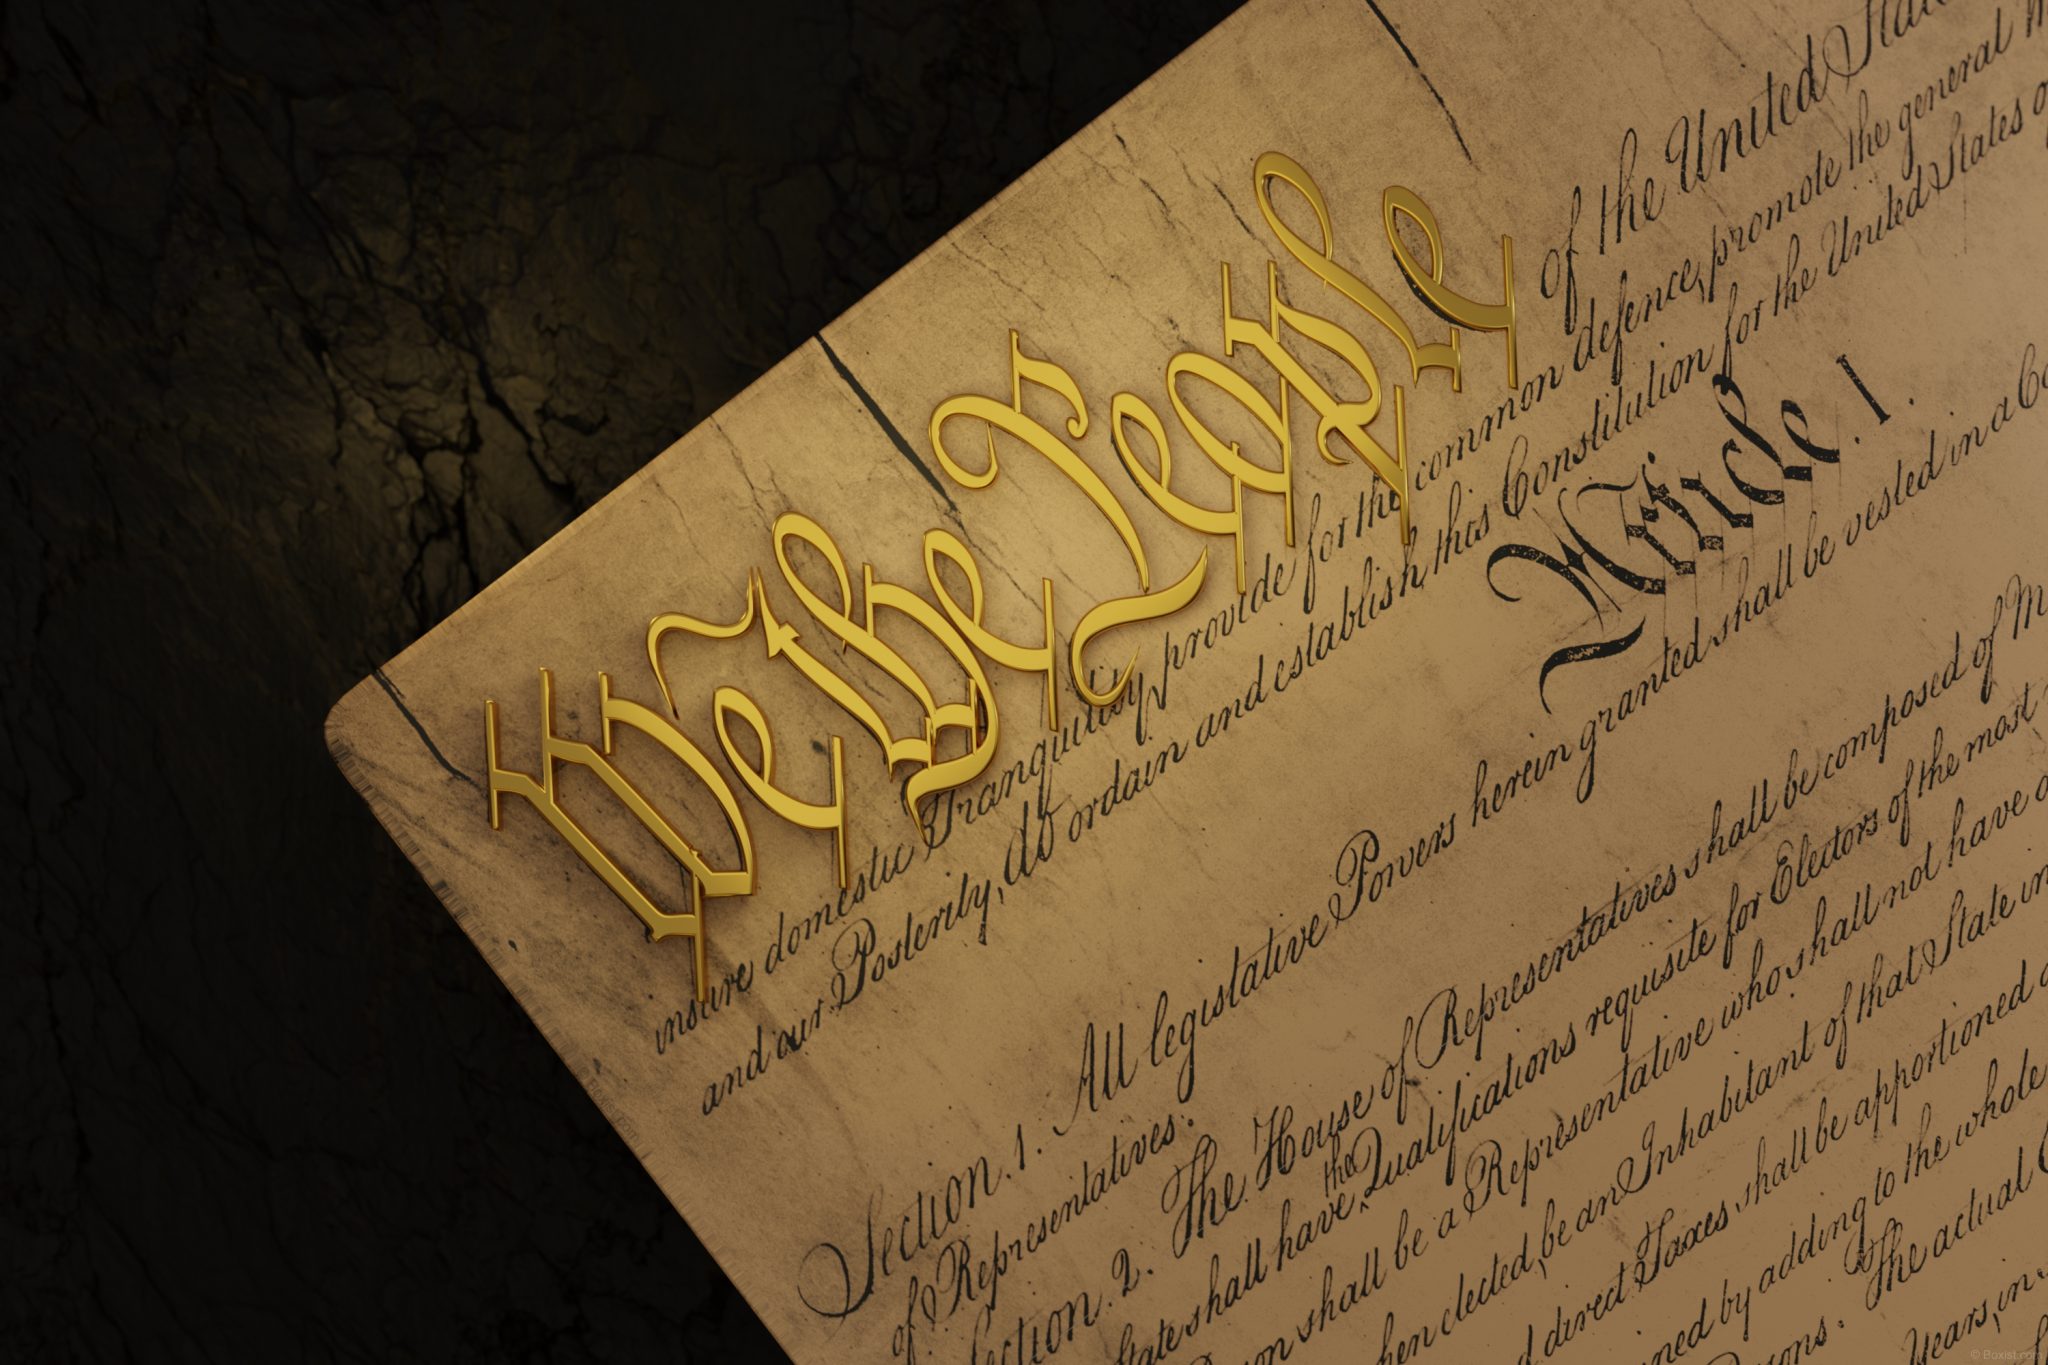 We the People of the United Stat
insure domestic Tranquility, provide for the common defence, promote the general
and our Posterity, do ordain and establish this Constitution for the United States o
Article. I.
Section. 1. All legislative Powers herein granted shall be vested in a Co
of Representatives.
ection. 2. The House of Representatives shall be composed of M
State shall have the Qualifications requisite for Electors of the most
son shall be a Representative who shall not have a
hen elected, be an Inhabitant of that State in
d direct Taxes shall be apportioned a
ned by adding to the whole
sons. The actual
Years, in
© Boxist.com